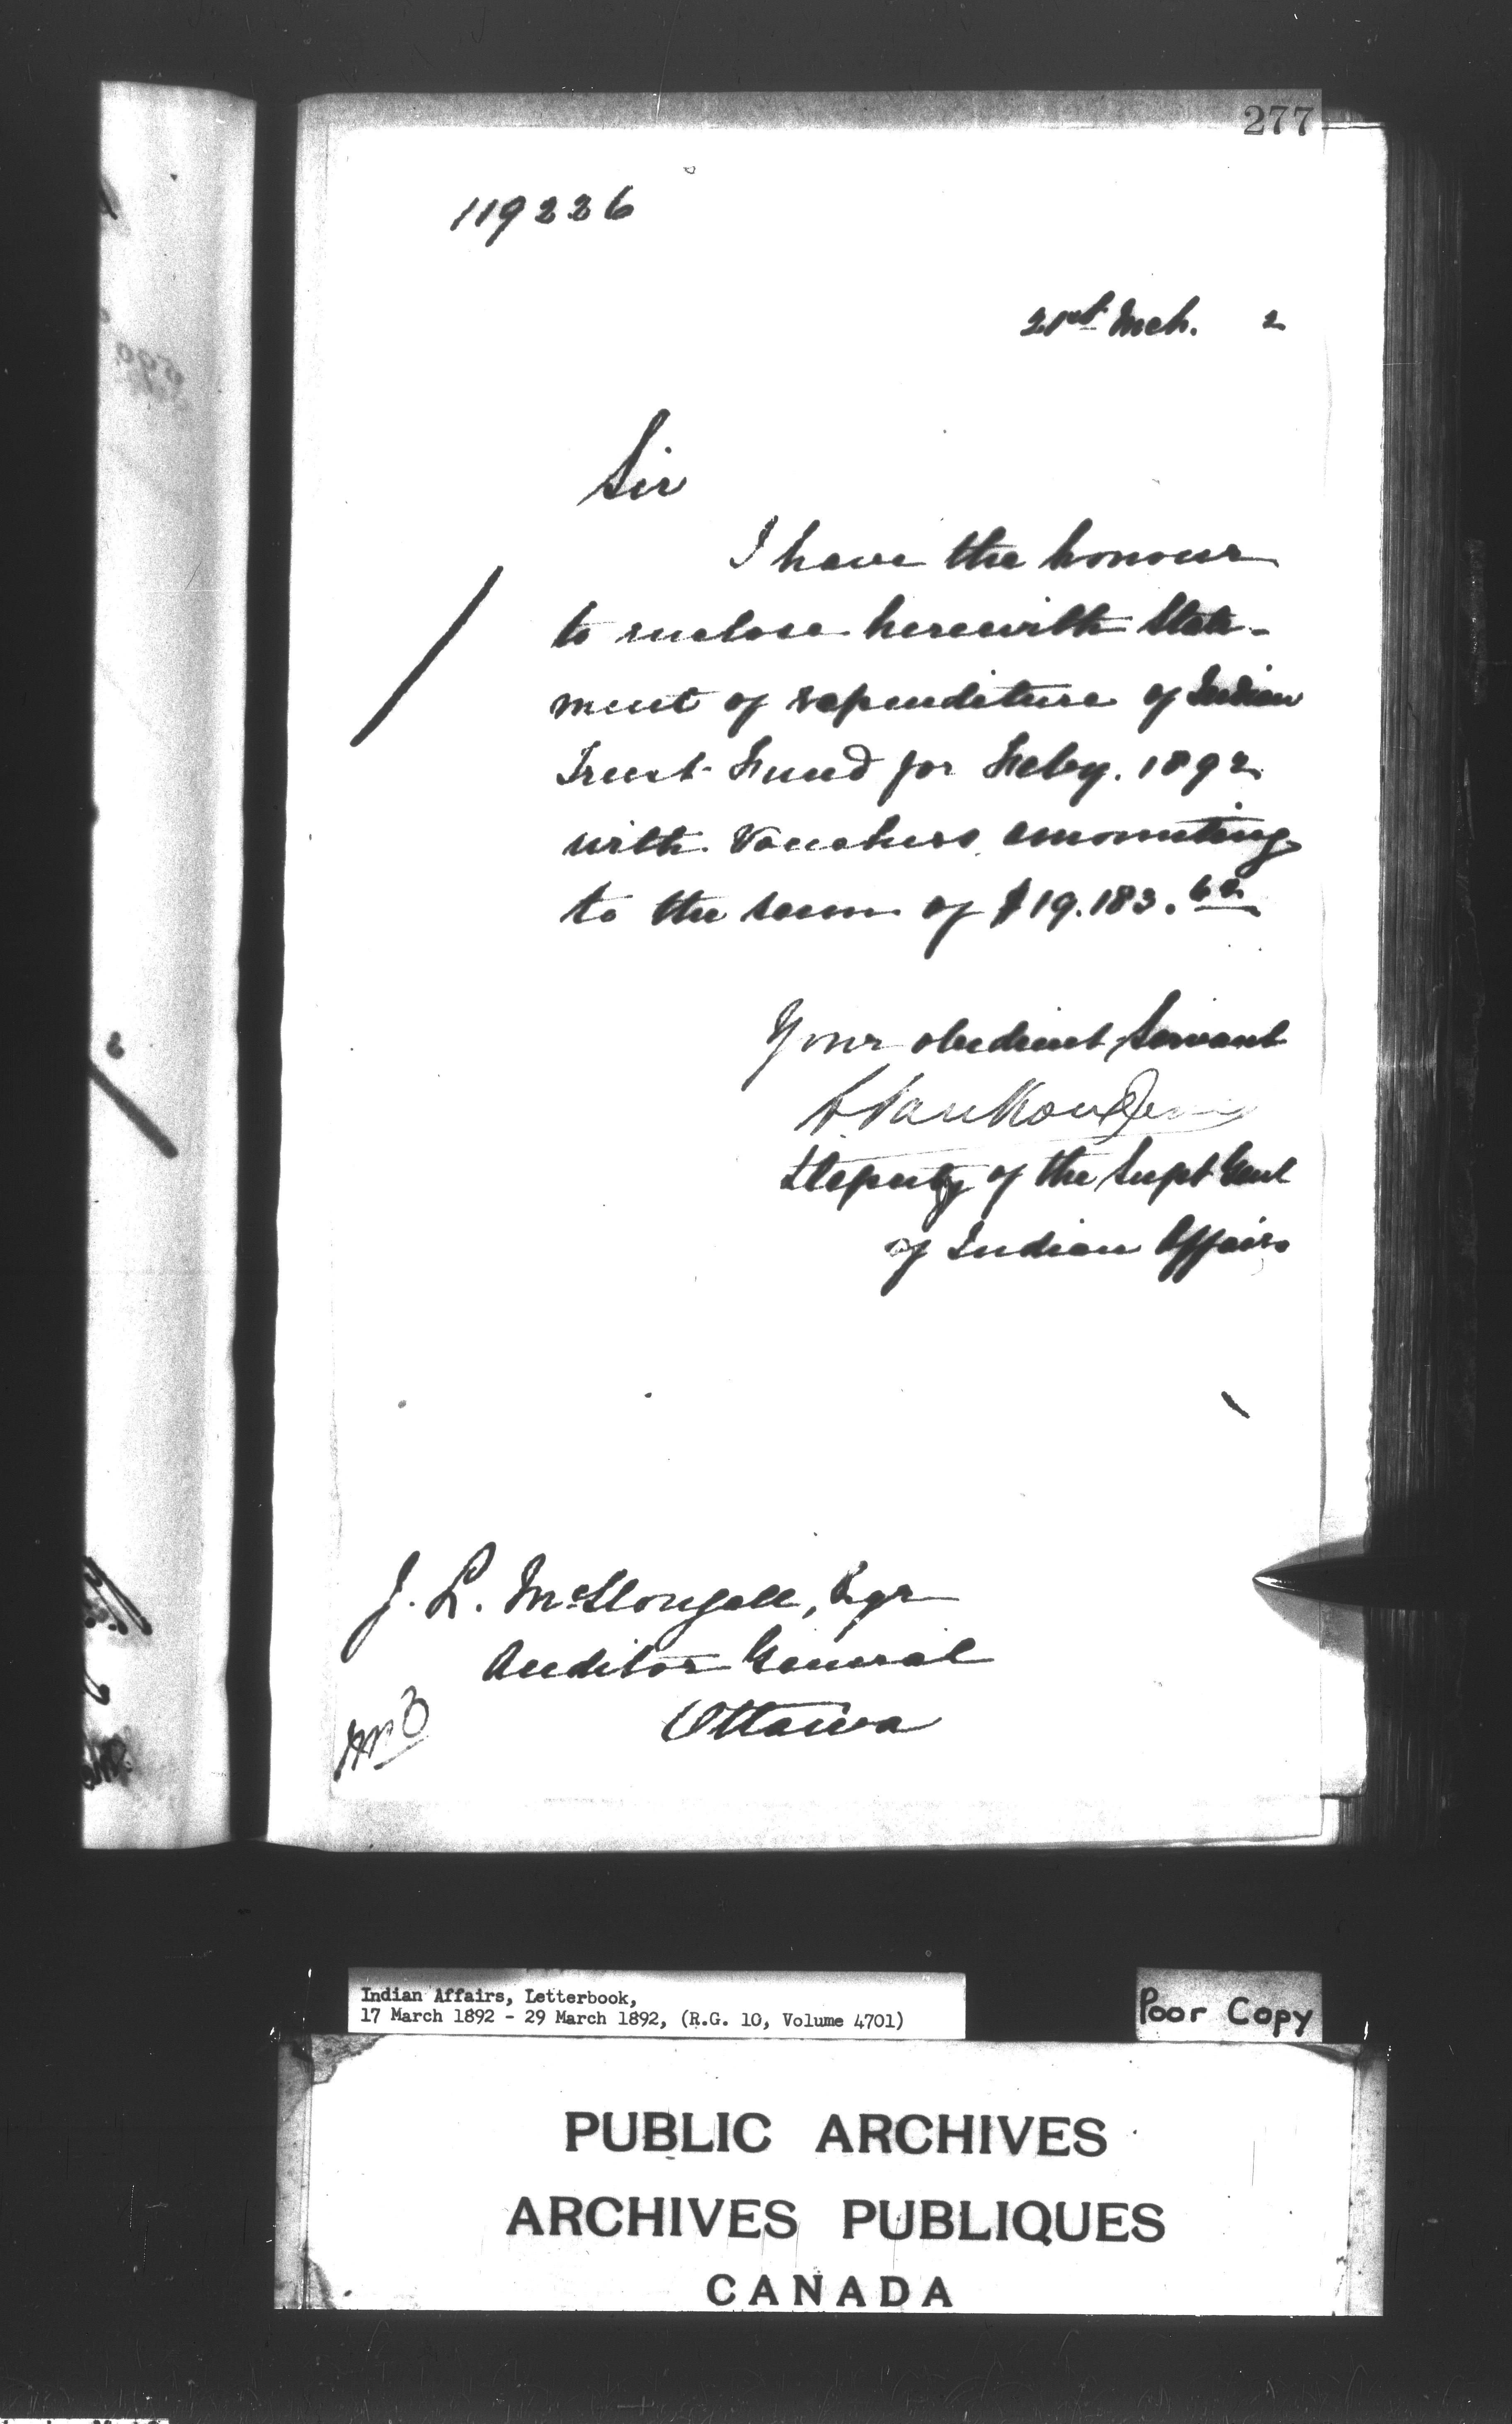 277
119226
21st Mch. 2
Sir
I have the honour
to enclose herewith State-
ment of expenditure of Indian
Trust Fund for Feby. 1892
with Vouchers amounting
to the sum of $19.183.62
Your obedient Servant
L Vankoughnet
Deputy of the Supt Genl
of Indian Affairs
J. L. McDougall, Eqr
Auditor General
Ottawa
Indian Affairs, Letterbook,
17 March 1892 - 29 March 1892, (R.G. 10, Volume 4701)
Poor Copy
PUBLIC ARCHIVES
ARCHIVES PUBLIQUES
CANADA